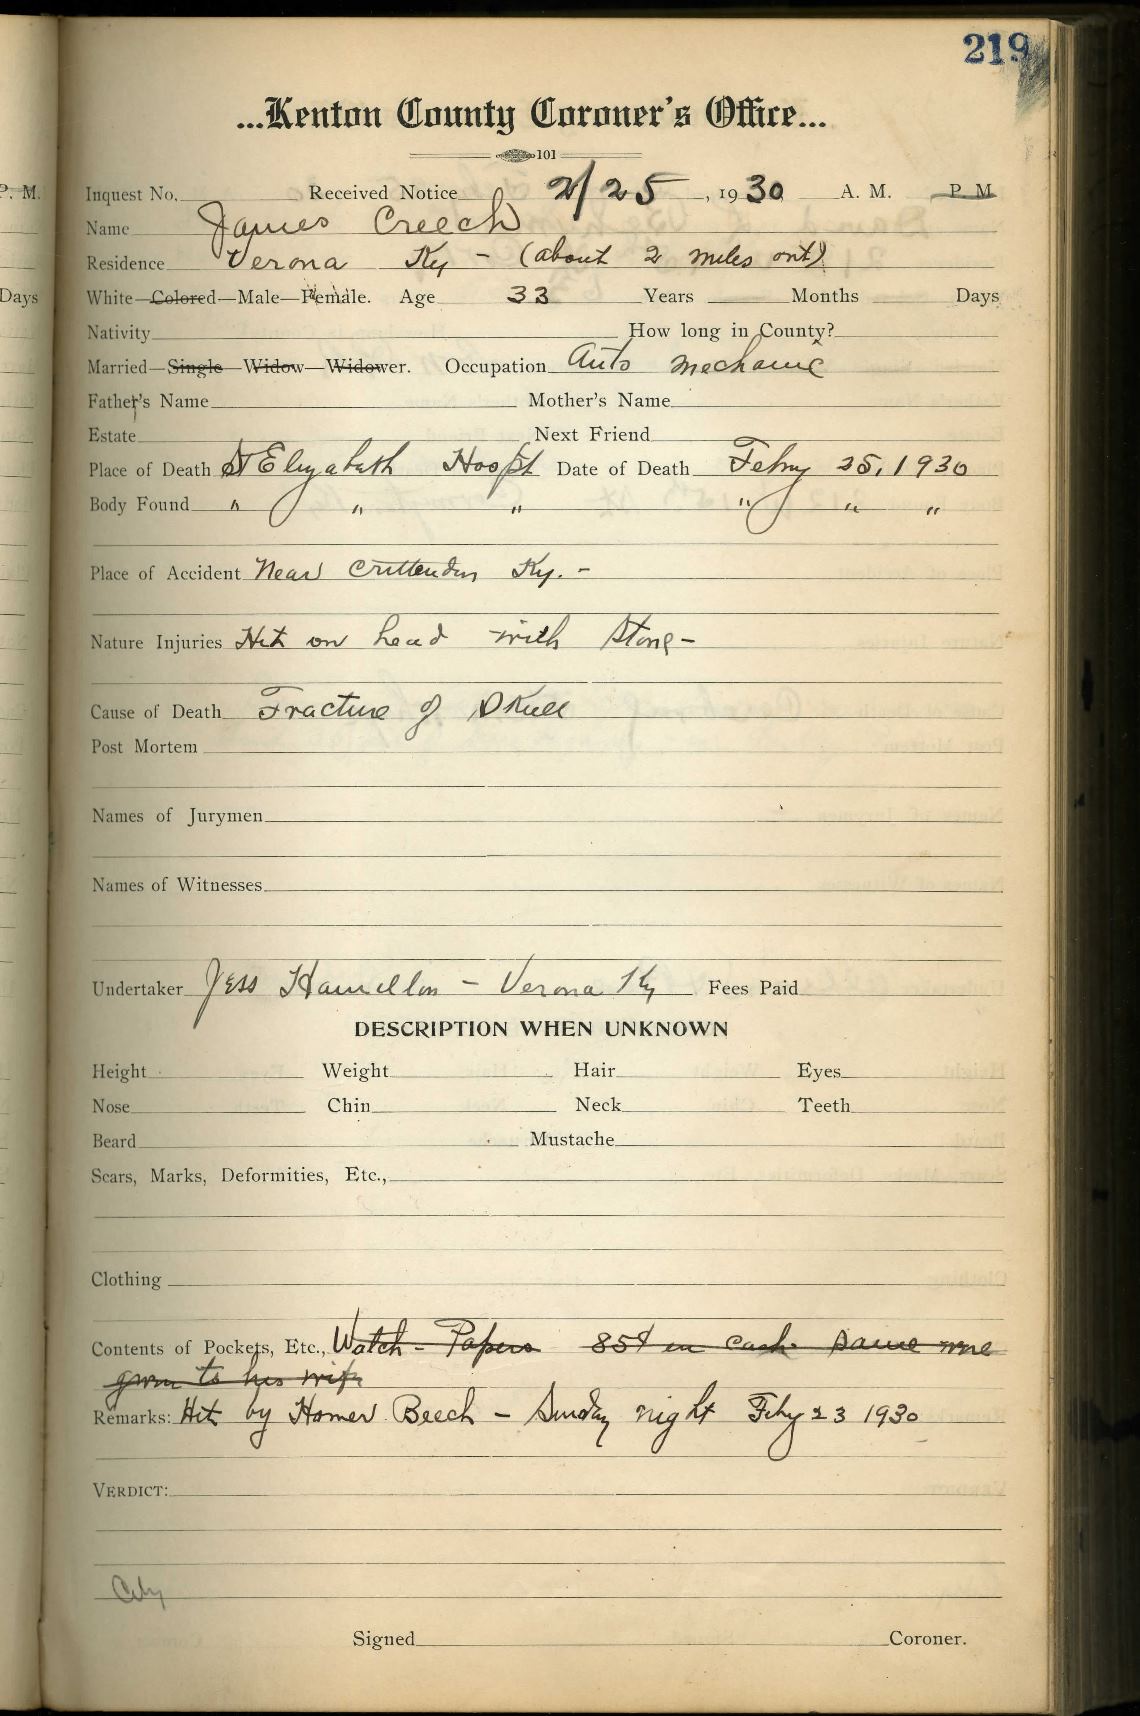 219
...Kenton County Coroner's Office...
101
P. M. Inquest No. Received Notice 2/25, 1930 A. M. P. M
Name James Creech
Residence Verona Ky - (about 2 miles out)
Days White—Colored—Male—Female. Age 33 Years Months Days
Nativity How long in County?
Married—Single—Widow—Widower. Occupation Auto mechanic
Father's Name Mother's Name
Estate Next Friend
Place of Death St Elizabeth Hospt Date of Death Feby 25, 1930
Body Found " " " " " "
Place of Accident Near Crittenden Ky. -
Nature Injuries Hit on head with Stone -
Cause of Death Fracture of Skull
Post Mortem
Names of Jurymen
Names of Witnesses
Undertaker Jess Hamilton - Verona Ky Fees Paid
DESCRIPTION WHEN UNKNOWN
Height Weight Hair Eyes
Nose Chin Neck Teeth
Beard Mustache
Scars, Marks, Deformities, Etc.,
Clothing
Contents of Pockets, Etc., Watch - Papers 85¢ in cash. Same were
given to his wife
Remarks: Hit by Homer Beech - Sunday night Feby 23 1930
VERDICT:
City
Signed Coroner.